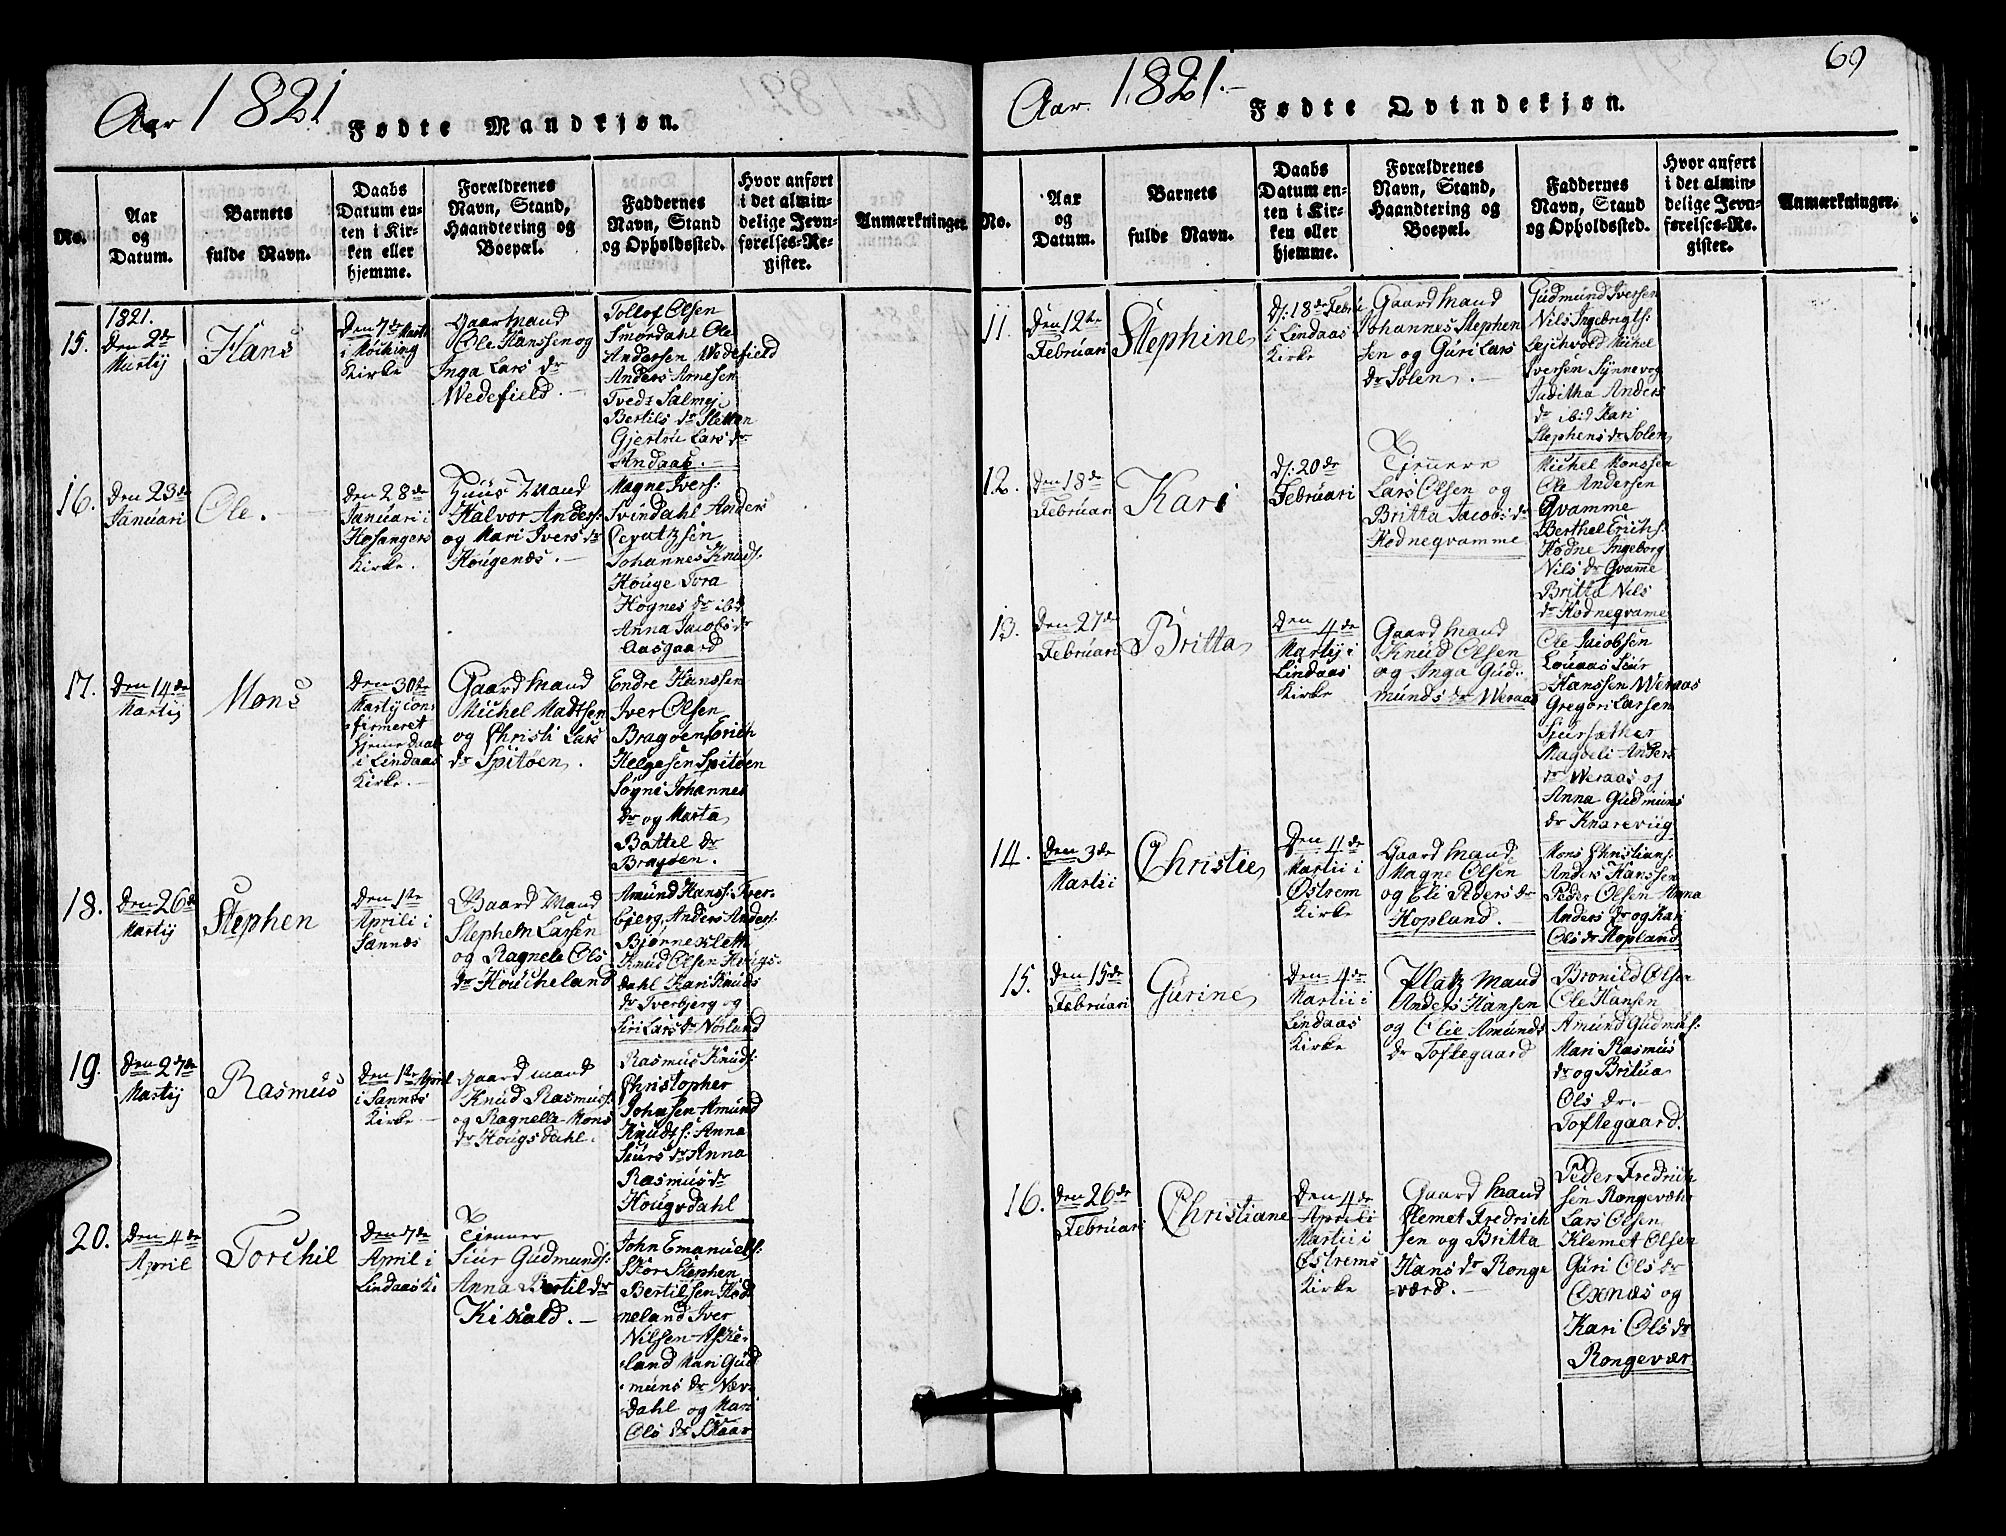 Aar 1821
Fødte Mandkjøn.
No.
Aar
og
Datum.
Barnets
fulde Navn.
Daabs
Datum en-
ten i Kir-
ken eller
hjemme.
Forældrenes
Navn, Stand,
Haandtering og
Boepæl.
Faddernes
Navn, Stand
og Opholdssted.
Hvor anført
i det almin-
delige Jevn-
førelses-Re-
gister.
Anmærkninger.
15.
1821.
Den 2de
Martij
Hans
Den 7de Marti
i Moching
Kirke
Gaard Mand
Ole Hanssen og
Inga Lars dr
Wedefield.
Tollof Olsen
Smørdahl Ole
Andersen Wedefield
Anders Arnesen
Tveds Salmej
Bertils dr Sletten
Gjertrü Lars dr
Andaas.
16.
Den 23de
Januari
Ole.
Den 28de
Januari i
Hosangers
Kirke.
Huus Mand
Halvor Anders:
og Mari Ivers dr
Hougenæs.
Magne Ivers:
Svindahl Anders
Johannes Knuds:
Houge Tora
Hognes dr ibd
Anna Jacobs dr
Aasgaard
17.
Den 14de
Martij
Mons
Den 30te
Martij con-
firmeret
hjeme daab
i Lindaas
Kirke.
Gaard Mand
Michel Madtsen
og Christi Lars
dr Spitøen.
Endre Hanssen
Iver Olsen
Bragøen Erich
Helgesen Spitøen
Søgni Johannes
dr og Marta
Battel dr
Bragøen.
18.
Den 26de
Martij
Stephen
Den 1te
Aprili i
Sannæs
Gaard Mand
Stephen Larsen
og Ragnele Ols
dr Houcheland
Amünd Hanss: Iver-
bjerg, Anders Anders:
Bjønnesleth
Knud Olsen Hougs-
dahl Kari Knuds
dr Iverbjerg og
Siri Lars dr Norland
19.
Den 27de
Martij
Rasmüs
Den 1te April
i Sannæs
Kirke
Gaard mand
Knud Rasmus:
og Ragnella Mons
dr Hougsdahl.
Rasmus Knuds:
Christopher
Johnsen Amünd
Knudts: Anna
Siurs dr Anna
Rasmus dr
Hougsdahl
20.
Den 4de
April
Torchil
Den 7de
April i
Lindaas K
Tienere
Siur Gudmunds:
Anna Bertil dr
Kikald.
John Emanuels:
Skor Stephen
Bertilsen Hod-
neland Iver
Nilsen Aske-
land Mari Gud-
muns dr Nær-
dahl og Mari
Ols dr Skaar
69
Aar. 1821.
Fødte Qvindekjøn.
No.
Aar
og
Datum.
Barnets
fulde Navn.
Daabs
Datum en-
ten i Kir-
ken eller
hjemme.
Forældrenes
Navn, Stand,
Haandtering og
Boepæl.
Faddernes
Navn, Stand
og Opholdssted.
Hvor anført
i det almin-
delige Jevn-
førelses-Re-
gister.
Anmærkninger.
11.
Den 12te
Februari
Stephine
D: 18de Febru
i Lindaas
Kirke
Gaard Mand
Johannes Stephen
sen og Guri Lars
dr Solen.
Gudmund Iversen
Nils Ingebrigts:
Michel
Iversen Synnev og
Juditha Anders
dr ibid Kari
Stephens dr Solen
12.
Den 18de
Februari
Kari
D: 20de
Februari
Tienere
Lars Olsen og
Britta Jacobs dr
Hodneqvamme
Michel Monssen
Ole Andersen
Qvamme
Berthel Erichs:
Hodne Ingeborg
Nils dr Qvamme
Britta Nils
dr Hodneqvame
13.
Den 27de
Februari
Britta
Den 4de
Martij i
Lindaas
Kirke
Gaard Mand
Knüd Olsen
og Inga Gud-
munds dr Weraas
Ole Jacobsen
Louaas Siur
Hanssen Weraas
Gregori Larsen
Siursæther
Magdeli Anders
dr Weraas og
Anna Gudmuns
dr Knareviig
14.
Den 3de
Martii
Christie
Den 4de
Martii i
Østrem
Kirke
Gaard Mand
Magne Olsen
og Eli Peders dr
Hopland.
Mons Christians:
Anders Hanssen
Peder Olsen Anna
Anders dr og Kari
Ols dr Hopland
15.
Den 15de
Februari
Gurine
Den 4de
Martii i
Lindaas
Kirke
Platz Mand
Anders Hansen
og Olie Amünds
dr Toftegaard
Bronild Olsen
Ole Hansen
Amund Gudmus:
Mari Rasmus
dr og Britua
Ols dr.
Toftegaard.
16.
Den 26de
Februari
Christiane
Den 4de
Aprili
Martii i
Østrems
Kirke
Gaard Mand
Clemet Fredrich
sen og Britta
Hans dr Ronge
=værd.
Peder Fredrich
sen Rongevær
Lars Olsen
Klemet Olsen
Guri Ols dr
Oxnæs og
Kari Ols dr
Rongevær